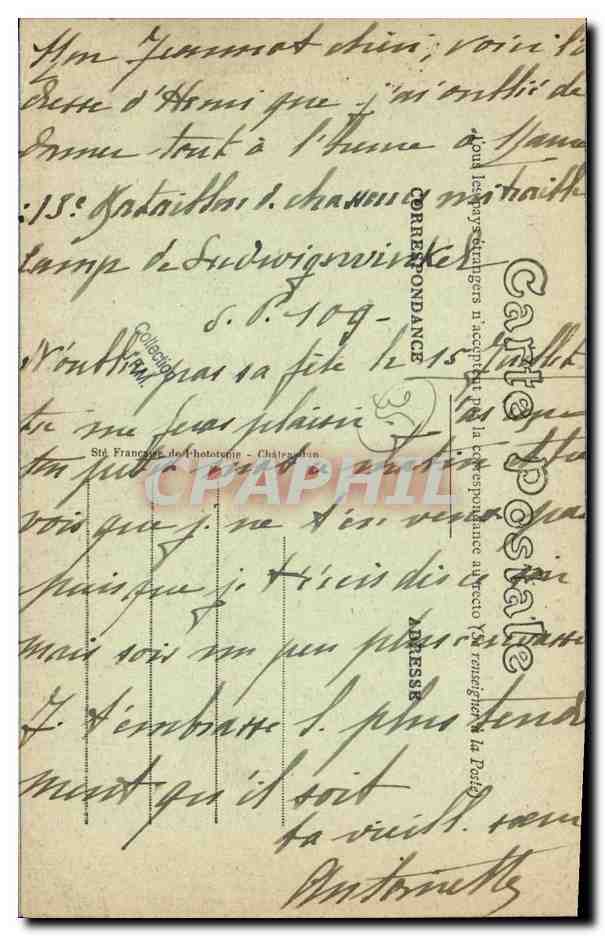 Mon Jeannot chéri, voici l'a
dresse d'Henri que j'ai oublié de
donner tout à l'heure à Mame
: 15e Bataillon d. chasseurs mitraille
camp de Ludwigswinkel
S. P. 109 -
N'oublie pas sa fête le 15 Juillet
tu me feras plaisir. J'ai reçu
ton petit mot matin. tu
vois que j. ne t'en veux pas
puisque j. t'écris dis
mais sois un peu plus
J. t'embrasse l. plus tendr
ment qu'il soit
ta vieill. sœur
Antoinette
Carte postale
Tous les pays étrangers n'acceptent pas la correspondance au recto (Se renseigner à la Poste)
CORRESPONDANCE
ADRESSE
Sté Française de Phototypie - Châteaudun
Collection
35
CPAPHIL